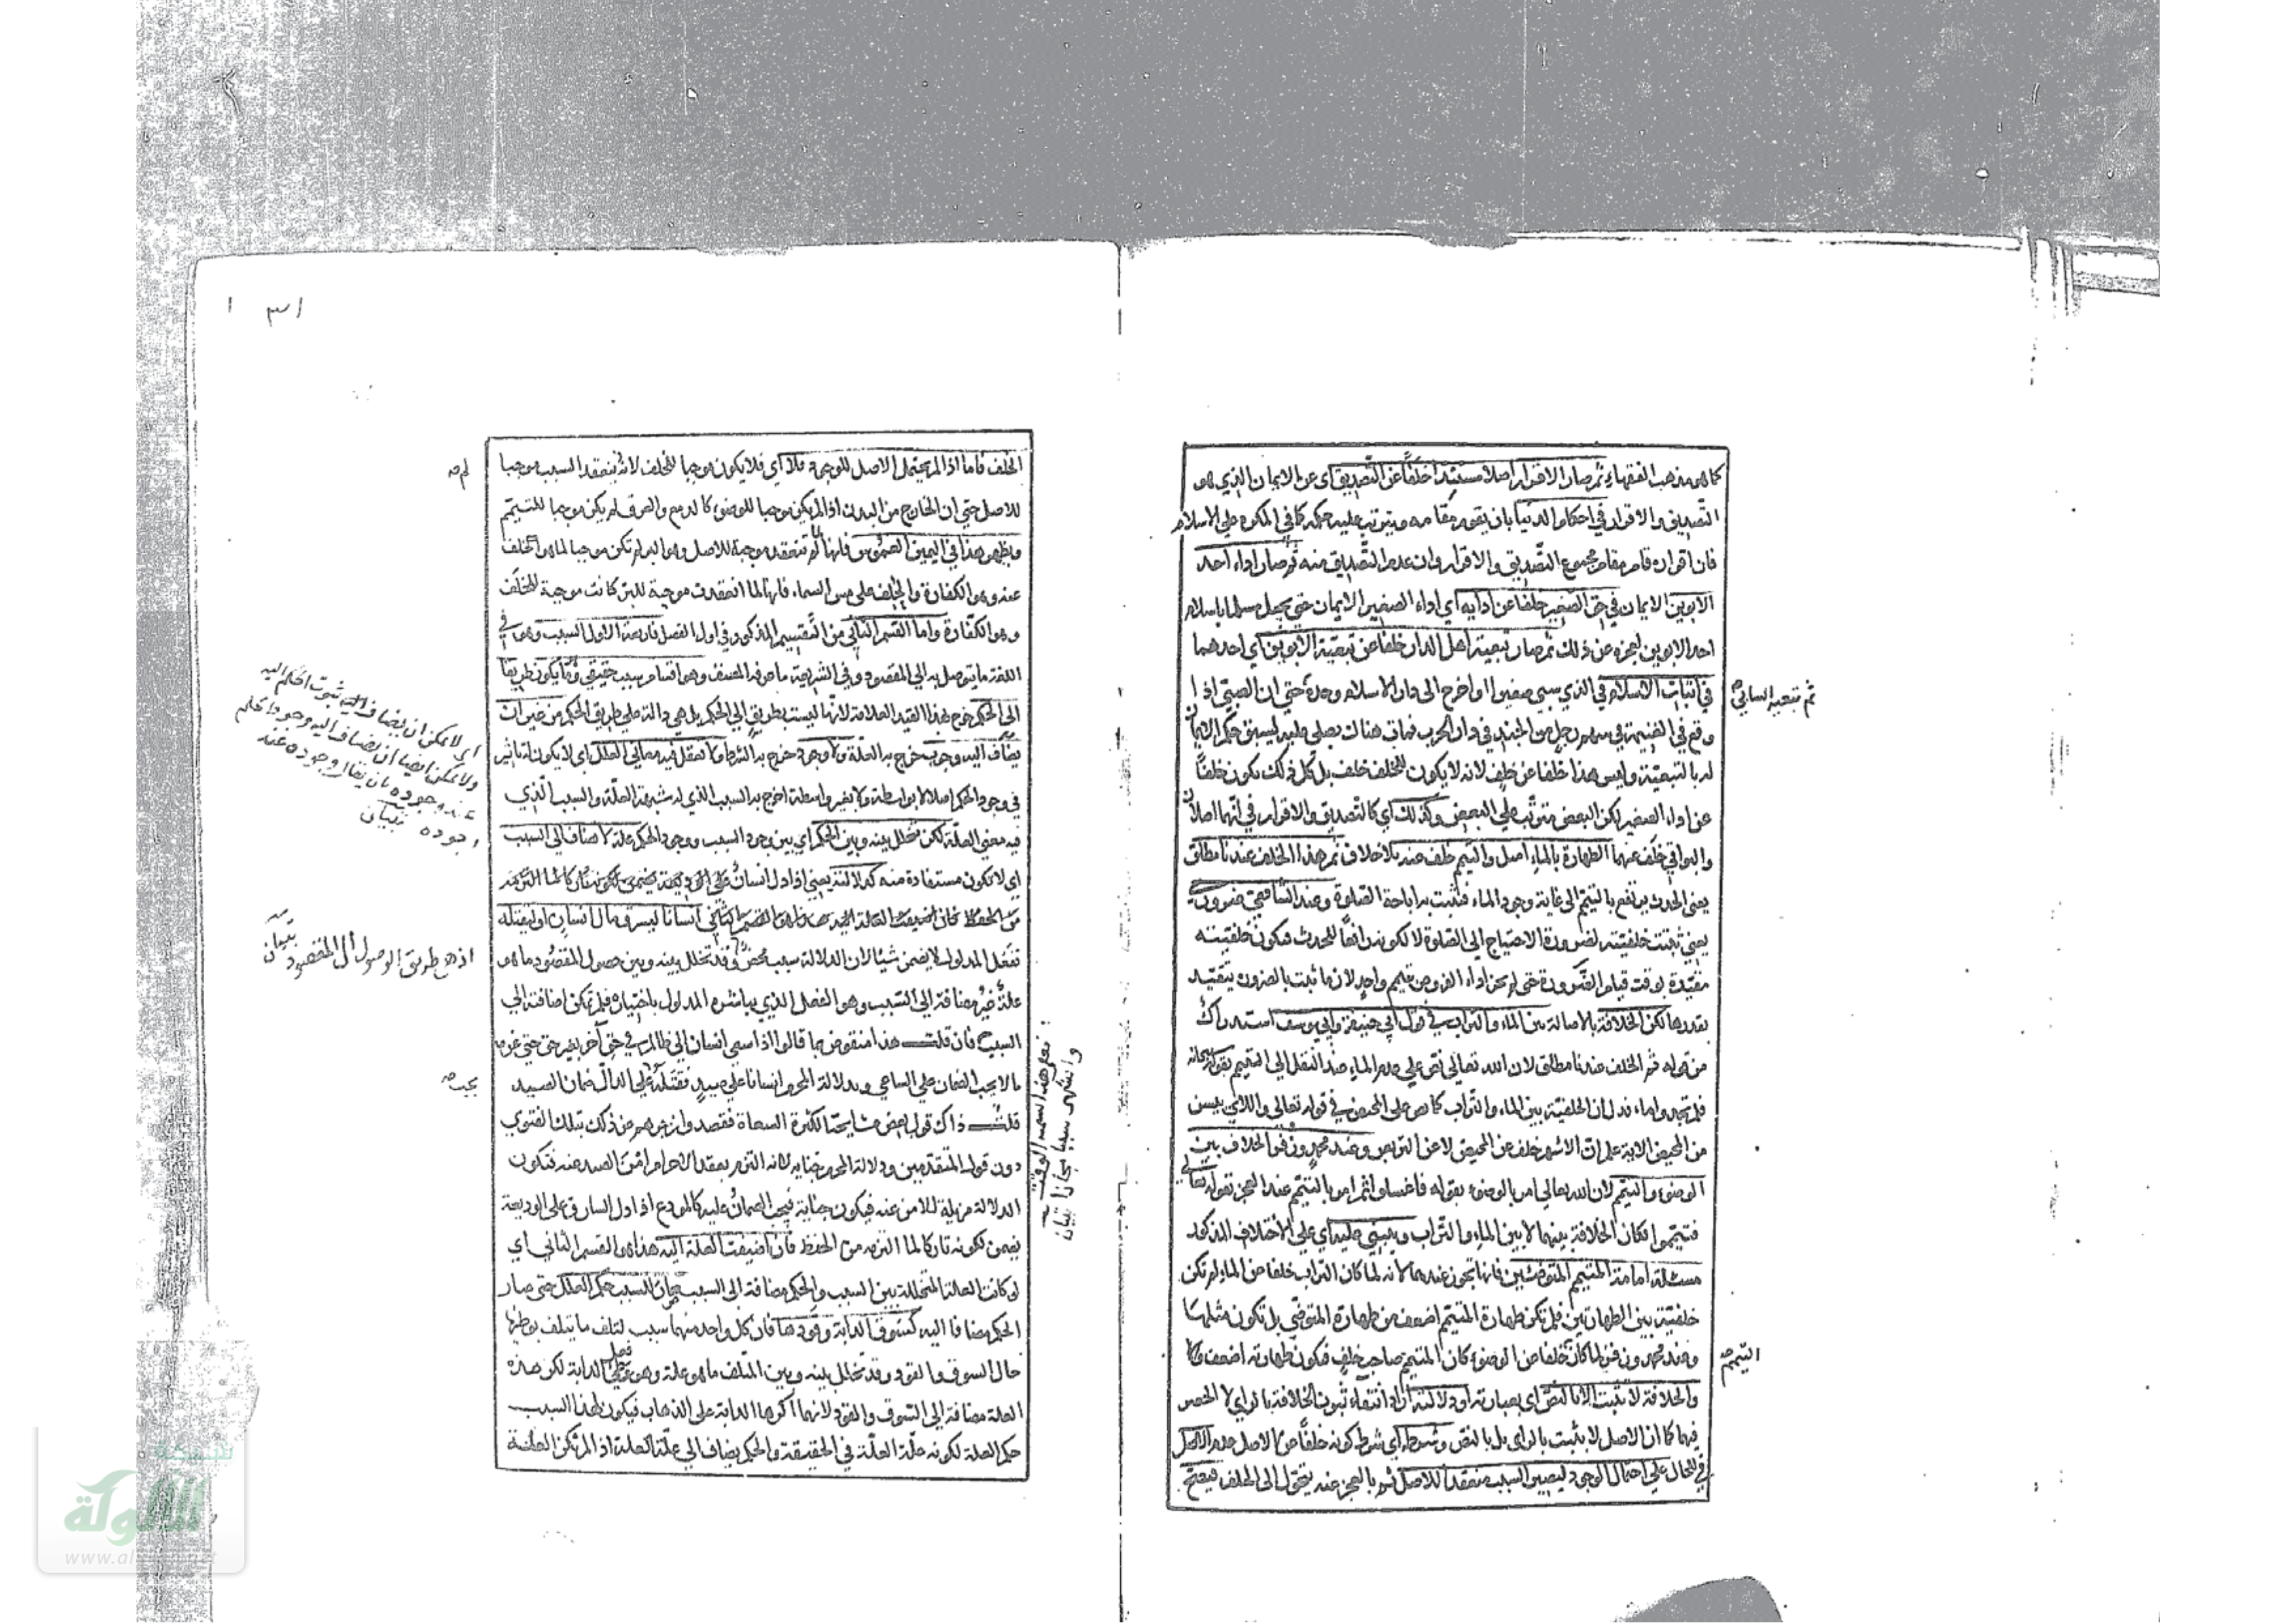 كما هو مذهب الفقهاء ثم صار الاقرار اصلا مستبدا خلفا عن التصديق اى عن الايمان الذي هو
التصديق والاقرار في احكام الدنيا بان يقوم مقامه ويترتب عليه حكمه كما في المكره على الاسلام
فان اقراره قام مقام مجموع التصديق والاقرار وان عدم التصديق منه ثم صار اداء احد
الابوين الايمان في حق الصغير خلفا عن ادايه اي اداء الصغير الايمان حتى يجعل مسلما باسلام
احد الابوين لعجزه عن ذلك ثم صار تبعية اهل الدار خلفا عن تبعية الابوين اي احدهما
في اثبات الاسلام في الذي سبي صغيرا واخرج الى دار الاسلام وحده حتى ان الصبي اذا
وقع في الغنيمة في سهم رجل من الجند في دار الحرب فمات هناك يصلى عليه ليسبق حكم الايمان
له بالتبعية وليس هذا خلفا عن خلف لانه لا يكون للخلف خلف بل كل ذلك يكون خلفا
عن اداء الصغير لكن البعض مترتب على البعض وكذلك اي كالتصديق والاقرار في انهما اصلان
والبواقي خلف عنهما الطهارة بالماء اصل والتيمم خلف عنه بلا خلاف ثم هذا الخلف عندنا مطلق
يعني الحدث يرتفع بالتيمم الى غاية وجود الماء فتثبت به اباحة الصلوة وعند الشافعي ضروري
يعني ثبتت خلفيته لضرورة الاحتياج الى الصلوة لا لكونه رافعا للحدث فيكون خلفيته
مقيدة بوقت قيام الضرورة حتى لم يجز اداء الفروض بتيمم واحد لان ما ثبت بالضرورة يتقيد
بقدرها لكن الخلافة بالاصالة بين الماء والتراب في قول ابي حنيفة وابي يوسف استدراك
من قوله ثم الخلف عندنا مطلق لان الله تعالى نص على عدم الماء عند النقل الى التيمم بقوله سبحانه
فلم تجدوا ماء فدل ان الخلفية بين الماء والتراب كما نص على المحيض في قوله تعالى واللائي يئسن
من المحيض الاية علم ان الاشهر خلف عن المحيض لا عن التربص وعند محمد وزفر الخلاف بين
الوضوء والتيمم لان الله تعالى امر بالوضوء بقوله فاغسلوا ثم امر بالتيمم عند العجز بقوله تعالى
فتيمموا فكان الخلافة بينهما لا بين الماء والتراب ويبتنى عليه اي على الاختلاف المذكور
مسئلة امامة المتيمم المتوضئين فانها تجوز عندهما لانه لما كان التراب خلفا عن الماء لم تكن
خلفية بين الطهارتين فلم تكن طهارة المتيمم اضعف من طهارة المتوضي بل تكون مثلها
وعند محمد وزفر لما كان خلفا عن الوضوء كان المتيمم صاحب خلف فيكون طهارته اضعف
والخلافة لا تثبت الا بالنص اى بعبارته او دلالته اراد انتفاء ثبوت الخلافة بالراي لا الحصر
فيهما كما ان الاصل لا يثبت بالراى بل بالنص وشرطه اي شرط كونه خلفا عن الاصل عدم الاصل
في الحال على احتمال الوجود ليصير السبب منعقدا للاصل ثم بالعجز عنه يتحول الى الخلف فيصح
التيمم صح
١٣١
الخلف فاما اذا لم يحتمل الاصل للوجود فلا اي فلا يكون موجبا للخلف لانه ينعقد السبب موجبا
لم صح
للاصل حتى ان الخارج من البدن اذا لم يكن موجبا للوضوء كالدمع والعرق لم يكن موجبا للتيمم
ويظهر هذا في اليمين الغموس فانها لما لم تنعقد موجبة للاصل وهو البر لم تكن موجبا لما هو الخلف
عنه وهو الكفارة والحلف على مس السماء فانها لما انعقدت موجبة للبر كانت موجبة للخلف
وهو الكفارة واما القسم الثاني من التقسيم المذكور في اول الفصل فاربعة الاول السبب وهو في
اللغة ما يتوصل به الى المقصود وفي الشريعة ما عرفه المصنف وهو اقسام سبب حقيقي وهو ما يكون طريقا
الى الحكم خرج بهذا القيد العلامة لانها ليست بطريق الى الحكم بل هي دالة على طريق الحكم من غير ان
يضاف اليه وجوب خرج به العلة ولا وجود خرج به الشرط ولا تعقل فيه معاني العلل اى لا يكون له تاثير
في وجود الحكم اصلا لا بواسطة ولا بغير واسطة اخرج به السبب الذي له شبهة العلة والسبب الذي
فيه معنى العلة لكن تخلل بينه وبين الحكم اي بين وجود السبب ووجود الحكم علة لا تضاف الى السبب
اى لا تكون مستفادة منه كدلالته يعني اذا دل انسان
انسانا ليسرق مال انسان او ليقتله
ففعل المدلول لا يضمن شيئا لان الدلالة سبب محض وقد تخلل بينه وبين حصول المقصود ما هو
علة غير مضافة الى السبب وهو الفعل الذي يباشره المدلول باختياره فلم تكن اضافته الى
السبب فان قلت هذا منقوض بما قالوا اذا سعى انسان الى ظالم في حق آخر بغير حق حتى غرمه
مالا يجب الضمان على الساعي وبدلالة المحرم انسانا على صيد فقتله على الدال ضمان الصيد
يجب صح
قلت ذاك قول بعض مشايخنا لكثرة السعاة فقصدوا زجرهم عن ذلك بتلك الفتوى
دون قول المتقدمين ودلالة المحرم جناية لانه التزم بعقد الاحرام امن الصيد عنه فتكون
الدلالة مزيلة للامن عنه فيكون جناية فيجب الضمان عليه كالمودع اذا دل السارق على الوديعة
يضمن لكونه تاركا لما التزمه من الحفظ فان اضيفت العلة اليه هذا هو القسم الثاني اي
لو كانت العلة المتخللة بين السبب والحكم مضافة الى السبب صار للسبب حكم العلل حتى صار
الحكم مضافا اليه كسوق الدابة وقودها فان كل واحد منهما سبب لتلف ما يتلف بوطئها
حال السوق والقود وقد تخلل بينه وبين المتلف ما هو علة وهو فعل الدابة لكن هذه
العلة مضافة الى السوق والقود لانهما اكرها الدابة على الذهاب فيكون لهذا السبب
حكم العلة لكونه علة العلة في الحقيقة والحكم يضاف الى علة العلة اذا لم تكن العلة
اى لا يمكن ان يضاف اليه ثبوت الحكم اليه
ولا يمكن ايضا ان يضاف اليه وجود الحكم
عند وجوده بان يقال وجوده عند
وجوده تبيان
اذ هو طريق الوصول الى المقصود تبيان
فعلم هذا
واشتهر سببا مجازا تبيان
شبكة
الألوكة